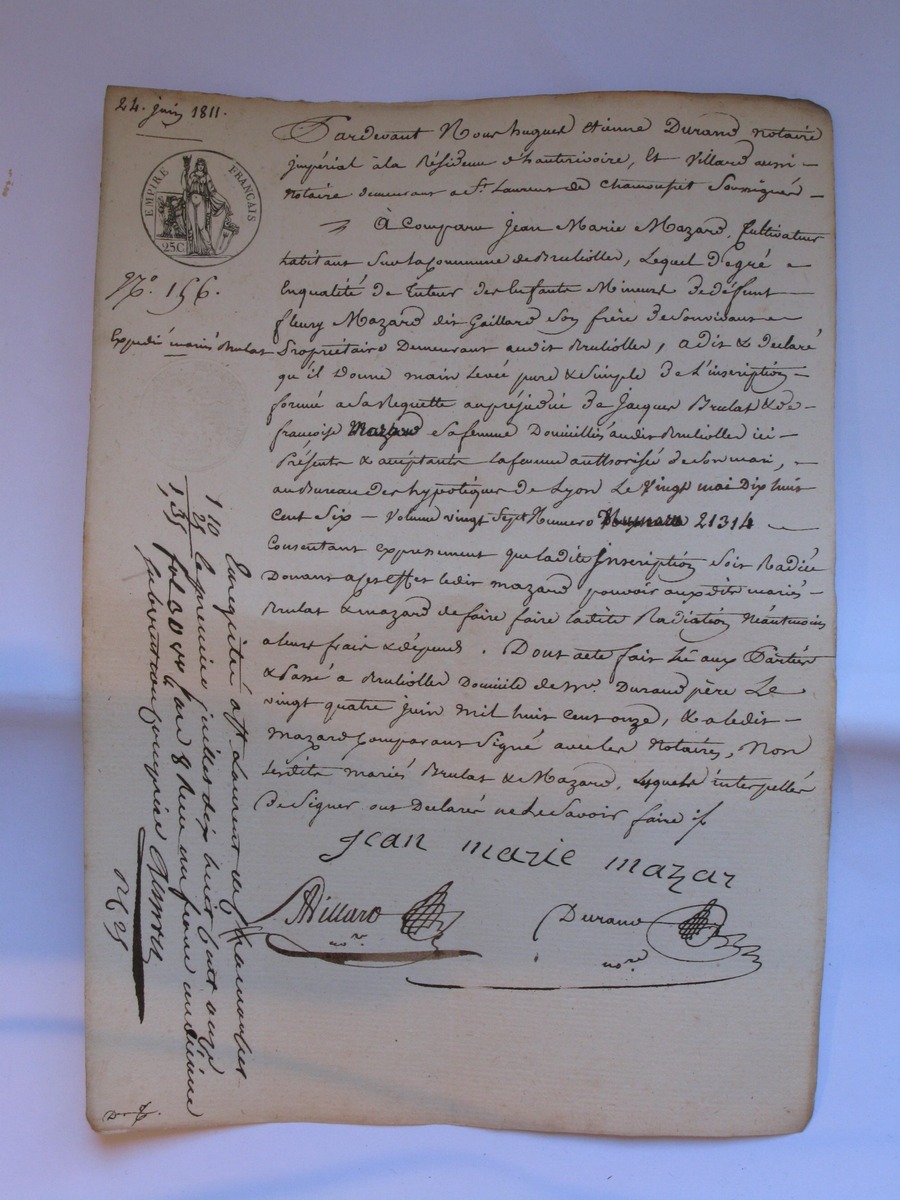 24. juin 1811.
EMPIRE FRANÇAIS
25C
N.º 156.
Expédié mariés Brulat
Pardevant Nous hugues Etienne Durand notaire
jmpérial à la Résidence d'hauterivoire, Et Villard aussi
Notaire demeurant a S.t Laurent de Chamousset Soussignés
À Comparu Jean Marie Mazard, Cultivateur
habitant Sur la Commune de Brulioller, Lequel de gré e
En qualité de Tuteur des Enfants Mineurs de défunt
fleury Mazard dit Gaillard Son frère De Son vivant
Propriétaire Demeurant audit Brulioller, a dit & declaré
qu'il Donne main Levée pure & Simple De L'inscription
formée a Sa Requette au préjudice De Jacques Brulat & de
françoise Mazard Sa femme Domiciliés audit Brulioller ici
Présents & acceptants La femme authorisée de Son mari,
au Bureau des hypotèques de Lyon Le Vingt mai Dix huit
Cent Six - Volume vingt Sept Numero 21314
Consentant expressement que ladite Inscription Soit Radiée
Donnant a ses effet ledit mazard pouvoir auxdits mariés
Brulat & mazard de faire faire ladite Radiation Néantmoins
a leurs frais & dépends. Dont acte fait Lû aux Parties
& Passé a Brulioller Domicile de Mr. Durand père Le
vingt quatre juin mil huit Cent onze, & a ledit
mazard Comparant Signé avec les Notaires, Non
lesdits mariés Brulat & Mazard, Lesquels interpellés
De Signer ont Déclarés ne Le Savoir faire
jean marie mazar
Villard
no.re
Durand
no.re
Enregistré a St Laurent de Chamousset
1 10 le premier juillet dix huit Cent onze
21
1,31 fol 30 Vo Case 8 Reçu un franc un dixième